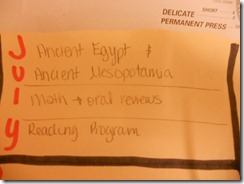 DELICATE SHORT
PERMANENT PRESS
July
Ancient Egypt &
Ancient Mesopotamia
Math → oral reviews
Reading Program